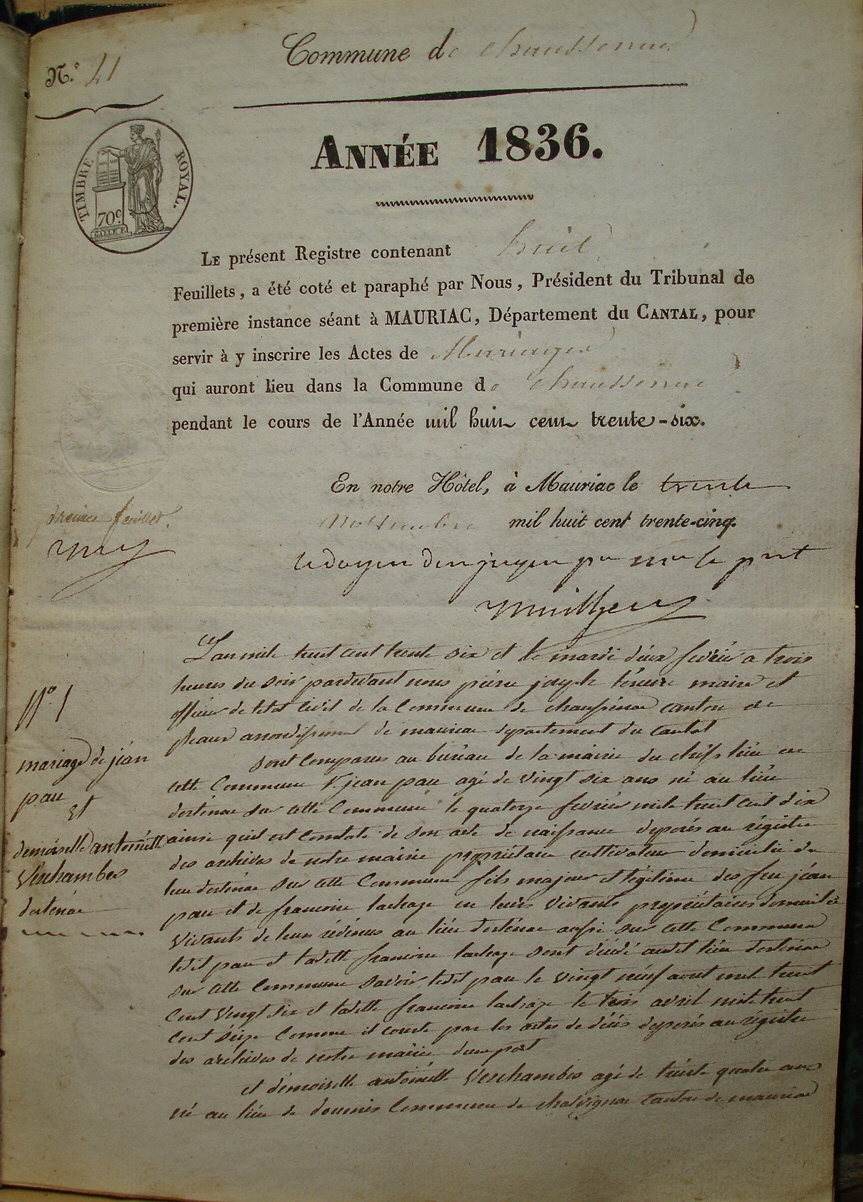 Commune de chaussenac
N.° 41
TIMBRE ROYAL.
70c
ANNÉE 1836.
LE présent Registre contenant huit
Feuillets, a été coté et paraphé par Nous, Président du Tribunal de
première instance séant à MAURIAC, Département du CANTAL, pour
servir à y inscrire les Actes de Mariages
qui auront lieu dans la Commune de chaussenac
pendant le cours de l'Année mil huit cent trente-six.
En notre Hôtel, à Mauriac le trente
Novembre mil huit cent trente-cinq.
premier feuillet.
le doyen des juges pr
L'an mile huit cent trente six et le mardi deux fevrié a trois
heures du soir pardevant nous pierre joseph maire et
officier de letat civil de la Commune de chaussenac canton de
pleaux arrondissement de mauriac departement du cantal
N° 1
mariage de jean
pau et
demoiselle antoinette
Verchambes
destenac
sont Comparus au bureau de la mairie du chefs lieu de
cette Commune Sr jean pau agé de vingt six ans né au lieu
destenac sur cette Commune le quatorze fevrié mile huit cent dix
ainsi quil est Constaté de son acte de naissance deposés au régistre
des archives de notre mairie propriétaire cultivateur domicilié du
lieu destenac sur cette Commune fils majeur et légitime des feu jéan
pau et de francoise lachaze en leurs vivants propriétaires domiciliés
vivants de leur revenus au lieu destenac aussi sur cette Commune
ledit pau et ladite francoise lachaze sont décédé audit lieu destenac
sur cette Commune savoir ledit pau le vingt neuf aout mile huit
cent vingt six et ladite francoise lachaze le trois avril mile huit
cent seize Comme il conste par les actes de décès deposés au régistre
des archives de notre mairie dune part
et démoiselle antoinette Verchambes agé de trente quatre ans
né au lieu de Commune de chalvignac canton de mauriac